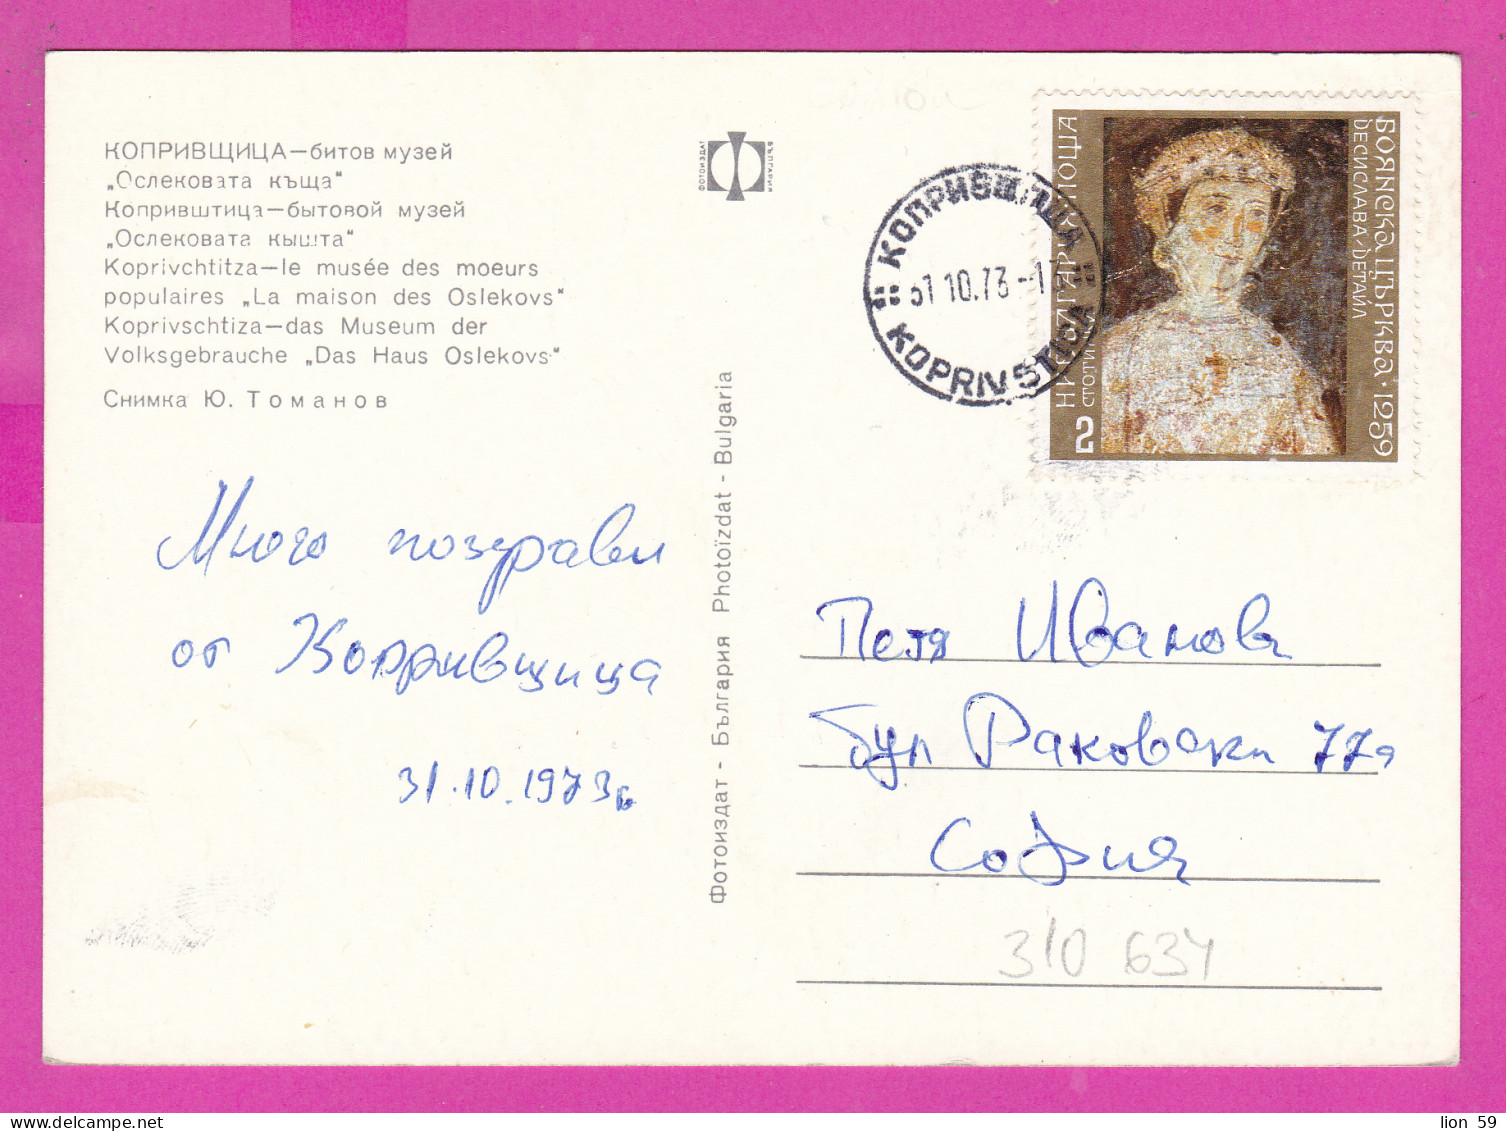 КОПРИВЩИЦА—битов музей
„Ослековата къща“
Копривштица—бытовой музей
„Ослековата кышта“
Koprivchtitza—le musée des moeurs
populaires „La maison des Oslekovs“
Koprivschtiza—das Museum der
Volksgebrauche „Das Haus Oslekovs“
Снимка Ю. Томанов
Много поздрави
от Копривщица
31.10.1973г
Фотоиздат - България Photoïzdat - Bulgaria
ФОТОИЗДАТ
БЪЛГАРИЯ
КОПРИВЩИЦА
31.10.73-17
KOPRIVSTICA
НР БЪЛГАРИЯ ПОЩА
СТОТИНКИ
2
БОЯНСКА ЦЪРКВА·1259
ДЕСИСЛАВА/ДЕТАЙЛ
Петя Иванова
бул Раковски 77а
София
310 634
lion 59